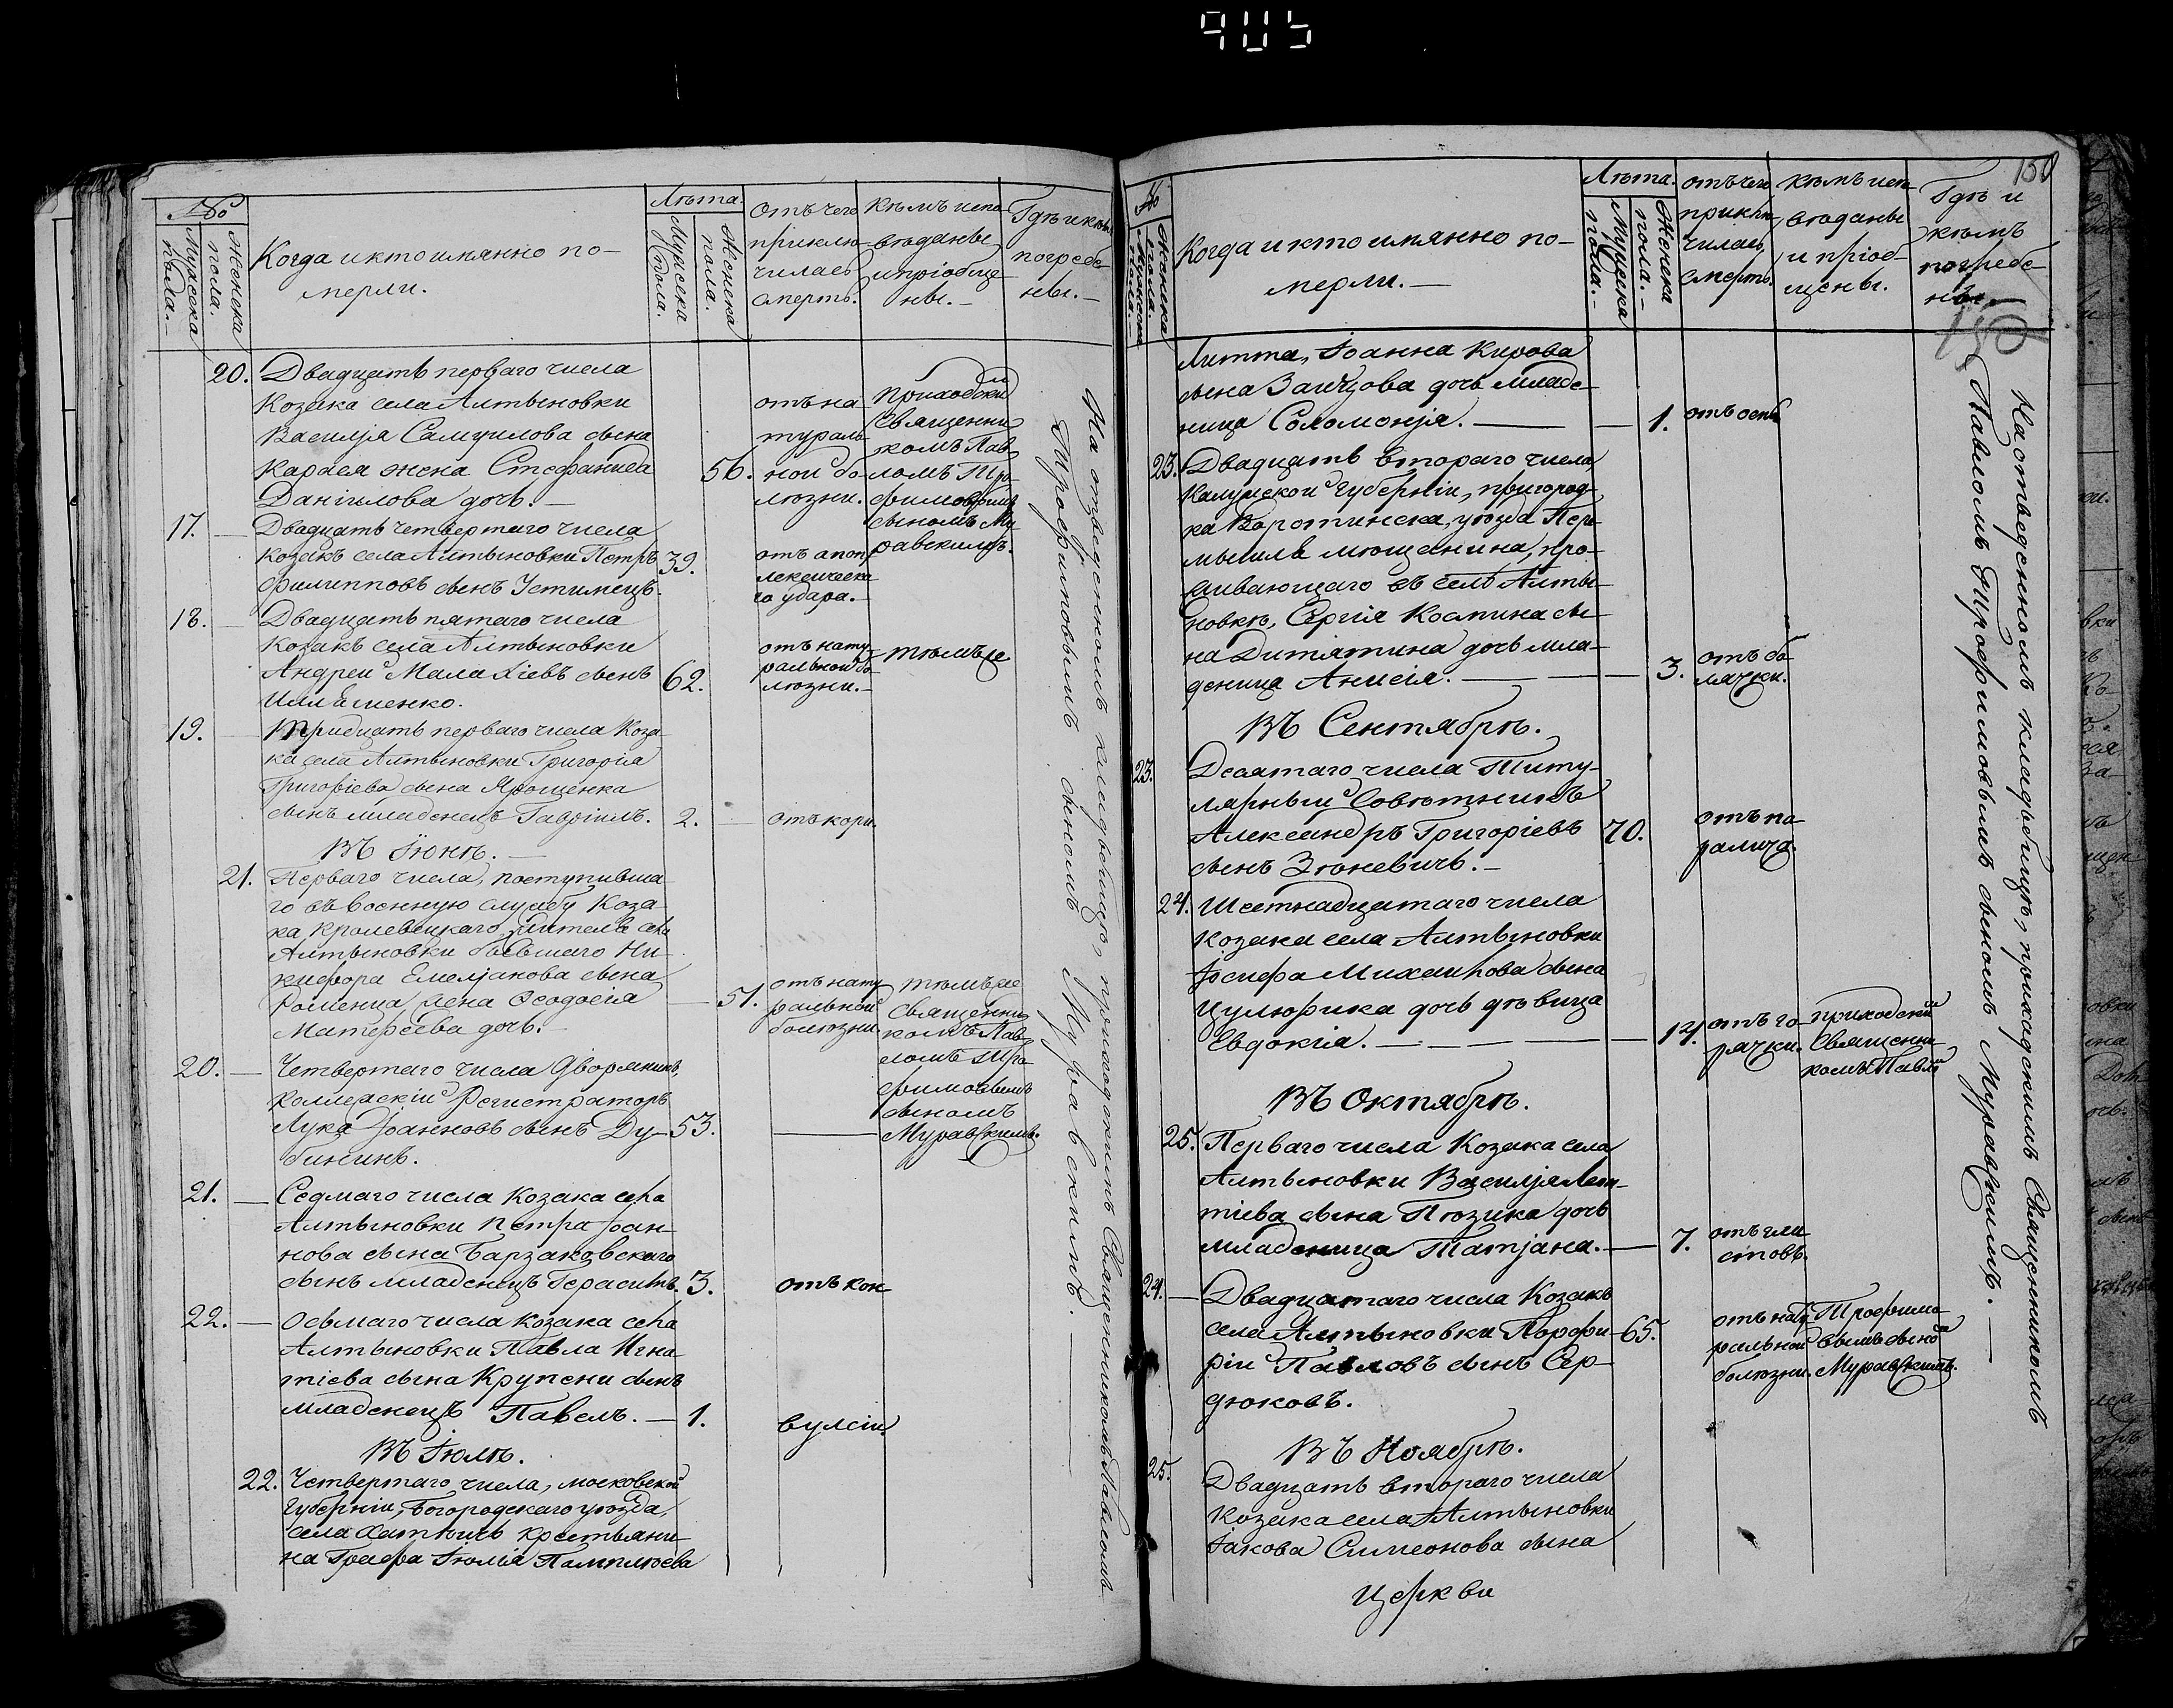 905
№
Мужеска пола.
Женска пола.
Когда и кто имянно по-
мерли.
Лѣта.
Мужеска пола.
Женска пола.
Отъ чего
приклю-
чилась
смерть.
Кѣмъ испо-
вѣданы
и пріобще-
ны.-
Гдѣ и кѣмъ
погребе-
ны.-
20. Двадцать перваго числа
Козака села Алтыновки
Василія Самуилова сына
Карася жена Стефанида
Даніилова дочь.-
56.
отъ на-
тураль-
ной бо-
лѣзни.
приходским
Священни-
комъ Пав-
ломъ Тро-
фимовымъ
сыномъ Му-
равскимъ.
17. - Двадцать четвертаго числа
Козакъ села Алтыновки Петръ 39.
Филипповъ сынъ Устимецъ.
отъ апоп-
лексическа-
го удара.-
18. - Двадцать пятаго числа
Козакъ села Алтыновки
Андрей Малахіевъ сынъ 62.
Ильяшенко.
отъ нату-
ральной бо-
лѣзни.-
тѣмъ же
19. - Тридцать перваго числа Коза-
ка села Алтыновки Григорія
Григоріева сына Ярошенка
сынъ младенецъ Гавріилъ. 2. - отъ кори.
Въ Іюнѣ.-
21. Перваго числа, поступивша-
го въ военную службу Коза-
ка Кролевецкаго, жителя села
Алтыновки бывшаго Ни-
кифора Емеліанова сына
Роменца жена Феодосія - 51.
Матфеева дочь.-
отъ нату-
ральной
болѣзни
тѣмъ же
Священни-
комъ Пав-
ломъ Тро-
фимовымъ
сыномъ
Муравскимъ.
20. - Четвертаго числа Дворянинъ,
Коллежскій Регистраторъ
Лука Іоанновъ сынъ Ду- 53.
бининъ.
21. - Седмаго числа Козака села
Алтыновки Петра Іоан-
нова сына Барзаковскаго
сынъ младенецъ Герасимъ. 3. отъ кон-
22. - Осьмаго числа Козака села
Алтыновки Павла Игна-
тіева сына Крупени сынъ
младенецъ Павелъ. - 1. вулсіи
Въ Іюлѣ.
22. Четвертаго числа, московской
Губерніи, Богородскаго уѣзда,
села крестьяни-
на Графа Юлія Памплѣева
На отведенномъ кладбищѣ, приходскимъ Священникомъ Павломъ
Трофимовымъ сыномъ Муравскимъ.
150
№
Женска пола.
Мужеска пола.
Когда и кто имянно по-
мерли.-
Лѣта.
Мужеска пола.-
Женска пола.-
отъ чего
приклю-
чилась
смерть.
кѣмъ испо-
вѣданы
и пріоб-
щены.
Гдѣ и
кѣмъ
погребе-
ны.-
150
Литта, Іоанна Кирова
сына Зайцова дочь младе-
ница Соломонія. - 1. отъ оспы
23. Двадцать втораго числа
Калужской Губерніи, пригород-
ка Воротынска, уѣзда Пере-
мышля мѣщанина, про-
живающаго въ селѣ Алты-
новкѣ, Сергія Космина сы-
на Дитятина дочь мла-
деница Анисія. - 3.
отъ бо-
лячки.
Въ Сентябрѣ.
23. Десятаго числа Титу-
лярный Совѣтникъ
Александръ Григоріевъ 70.
сынъ Зѣневичъ.-
отъ па-
ралича.
24. Шестнадцатаго числа
Козака села Алтыновки
Іосифа Михаилова сына
Цулюрика дочь дѣвица
Евдокія. - 14.
отъ го-
рячки.
приходским
Священни-
комъ Павло
Въ Октябрѣ.
25. Перваго числа Козака села
Алтыновки Василія Леон-
тіева сына Пѣзика дочь
младеница Татіана. - 7.
отъ гли-
стовъ.
24. - Двадцатаго числа Козакъ
села Алтыновки Порфи- 65.
рій Павловъ сынъ Сер-
дюковъ.
отъ нату-
ральной
болѣзни.
Трофимо-
вымъ сыно
Муравскимъ.
Въ Ноябрѣ.
25. Двадцать втораго числа
Козака села Алтыновки
Іакова Симеонова сына
Церкви
На отведенномъ кладбищѣ, приходскимъ Священникомъ
Павломъ Трофимовымъ сыномъ Муравскимъ.-